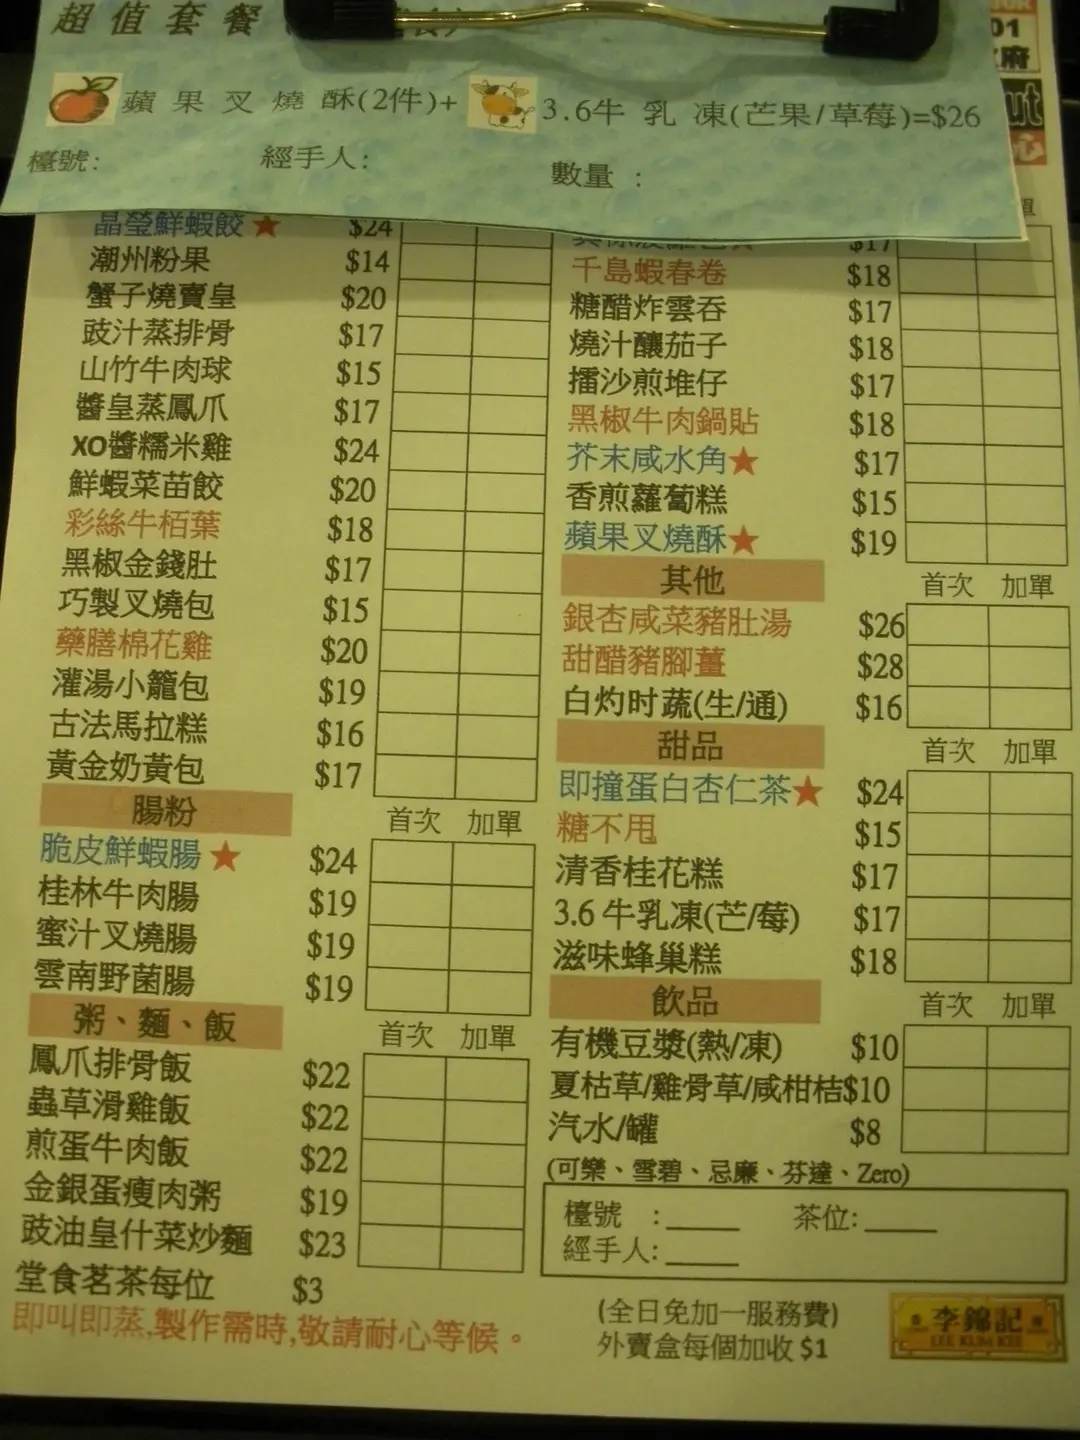 超值套餐
蘋果叉燒酥(2件)+ 3.6牛乳凍(芒果/草莓)=$26
檯號: 經手人: 數量 :
01
府
ut
心
晶瑩鮮蝦餃★ $24
潮州粉果 $14
蟹子燒賣皇 $20
豉汁蒸排骨 $17
山竹牛肉球 $15
醬皇蒸鳳爪 $17
XO醬糯米雞 $24
鮮蝦菜苗餃 $20
彩絲牛栢葉 $18
黑椒金錢肚 $17
巧製叉燒包 $15
藥膳棉花雞 $20
灌湯小籠包 $19
古法馬拉糕 $16
黃金奶黃包 $17
腸粉 首次 加單
脆皮鮮蝦腸★ $24
桂林牛肉腸 $19
蜜汁叉燒腸 $19
雲南野菌腸 $19
粥、麵、飯 首次 加單
鳳爪排骨飯 $22
蟲草滑雞飯 $22
煎蛋牛肉飯 $22
金銀蛋瘦肉粥 $19
豉油皇什菜炒麵 $23
堂食茗茶每位 $3
即叫即蒸,製作需時,敬請耐心等候。
單
$17
千島蝦春卷 $18
糖醋炸雲吞 $17
燒汁釀茄子 $18
擂沙煎堆仔 $17
黑椒牛肉鍋貼 $18
芥末咸水角★ $17
香煎蘿蔔糕 $15
蘋果叉燒酥★ $19
其他 首次 加單
銀杏咸菜豬肚湯 $26
甜醋豬腳薑 $28
白灼时蔬(生/通) $16
甜品 首次 加單
即撞蛋白杏仁茶★ $24
糖不甩 $15
清香桂花糕 $17
3.6 牛乳凍(芒/莓) $17
滋味蜂巢糕 $18
飲品 首次 加單
有機豆漿(熱/凍) $10
夏枯草/雞骨草/咸柑桔$10
汽水/罐 $8
(可樂、雪碧、忌廉、芬達、Zero)
檯號 :_____ 茶位:_____
經手人:_____
(全日免加一服務費)
外賣盒每個加收 $1
李錦記
LEE KUM KEE